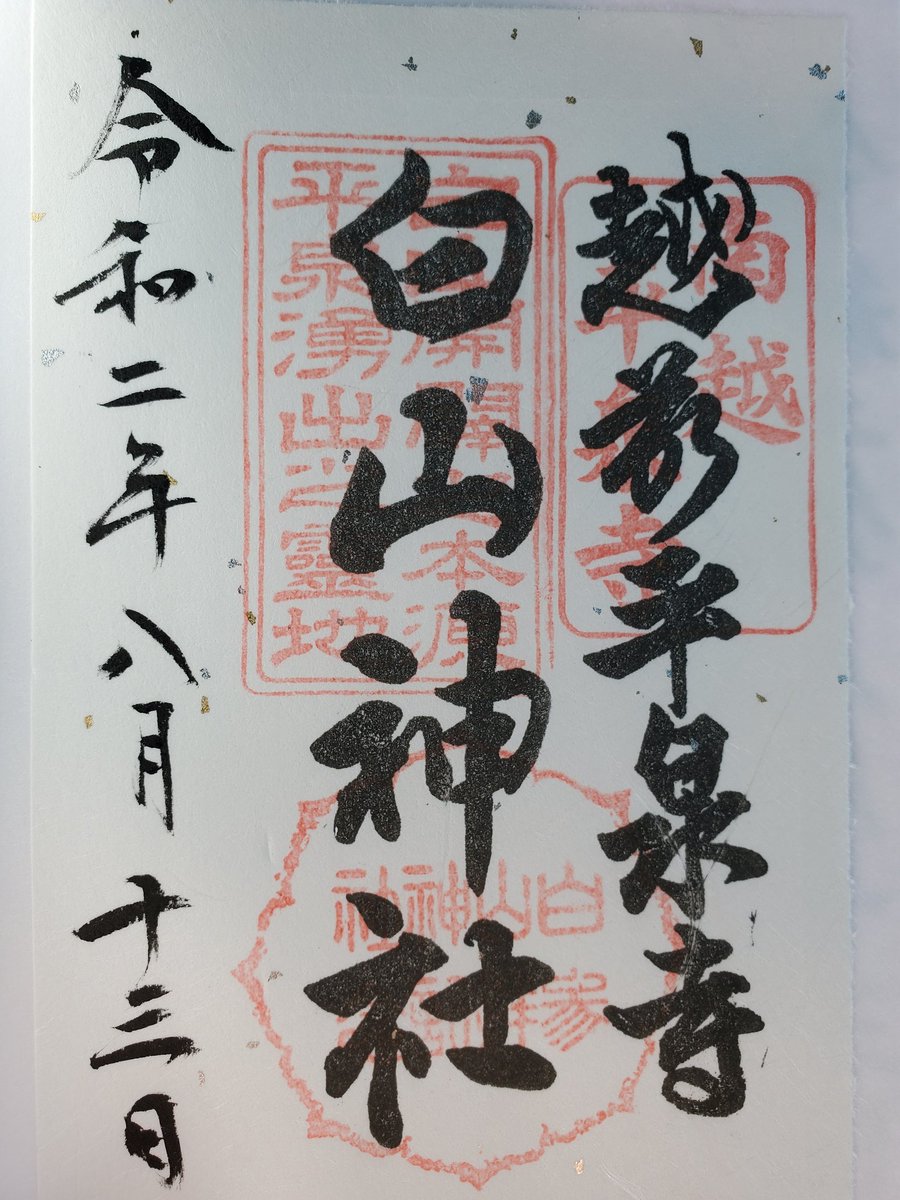 越前平泉寺
南越
平泉寺
白山神社
白山開闢之本源
平泉湧出之靈地
白山神社
令和二年八月十三日